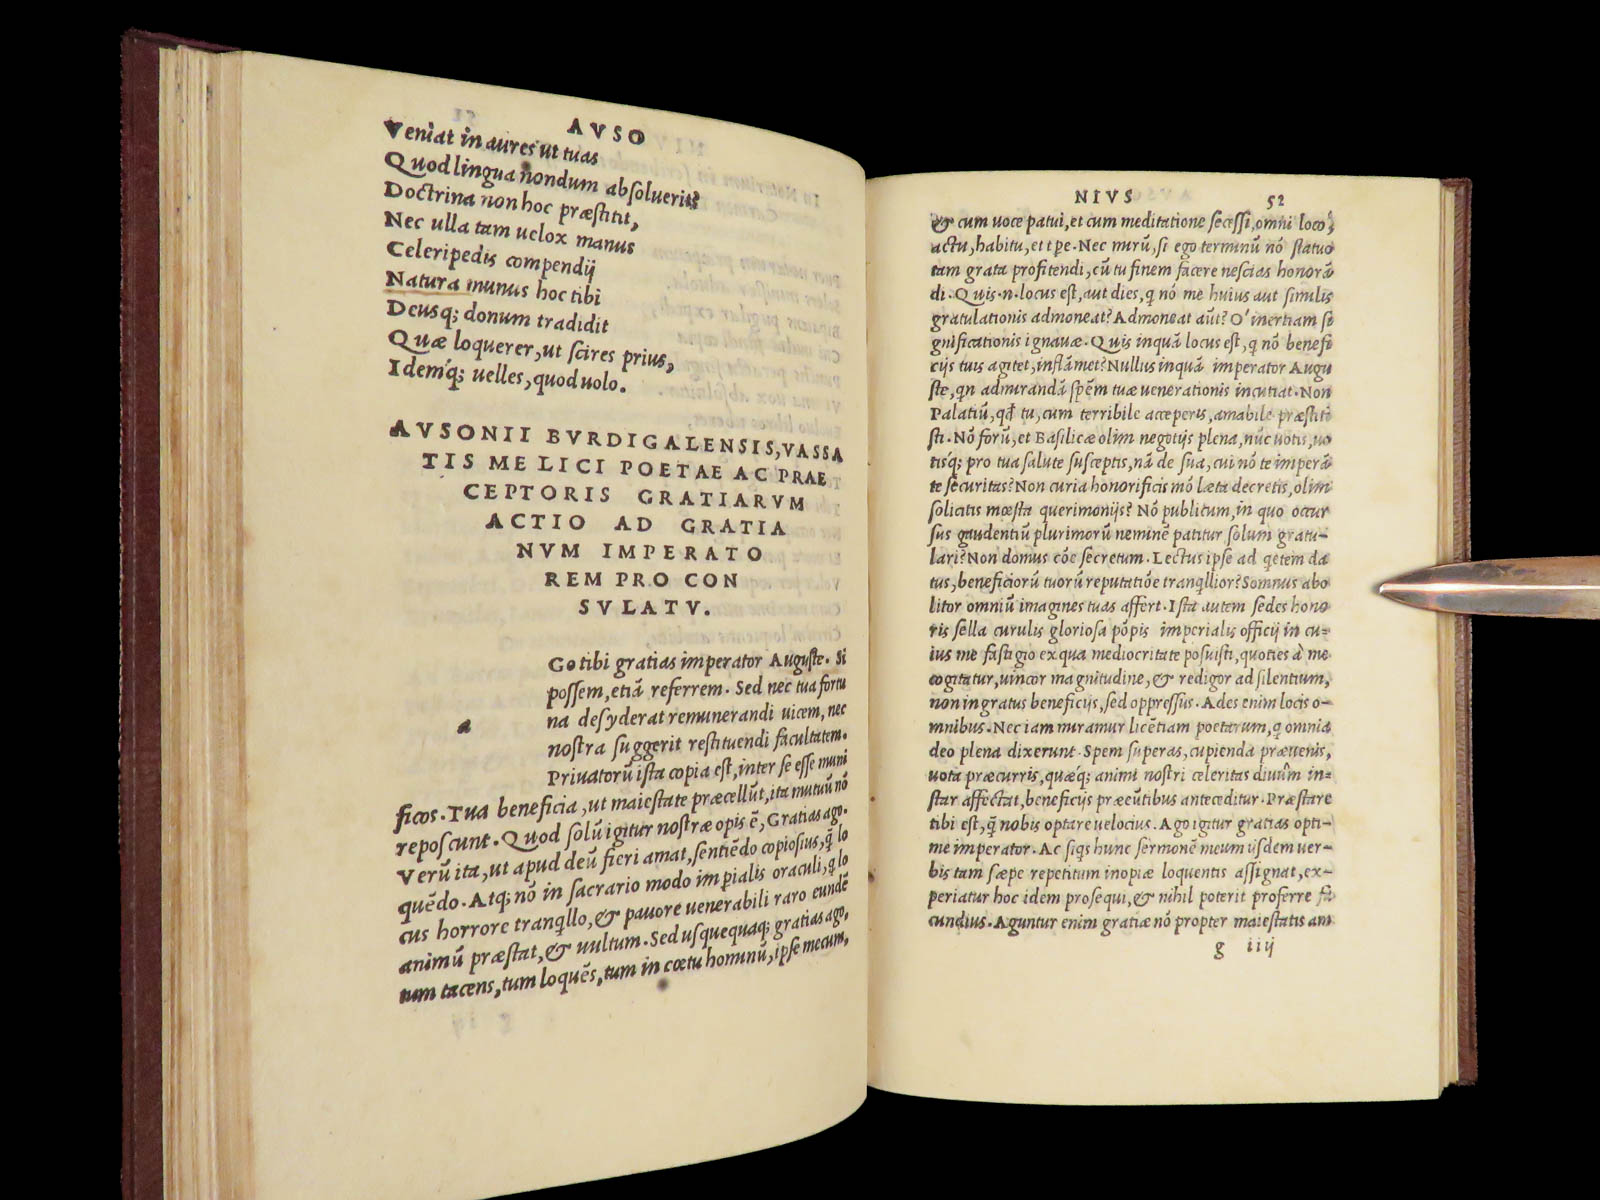 AVSO
Veniat in aures ut tuas
Quod lingua nondum absoluerit?
Doctrina non hoc præstitit,
Nec ulla tam uelox manus
Celeripedis compendij
Natura munus hoc tibi
Deusq; donum tradidit
Quæ loquerer, ut scires prius,
Idemq́; uelles, quod uolo.
AVSONII BVRDIGALENSIS, VASSA
TIS MELICI POETAE AC PRAE
CEPTORIS GRATIARVM
ACTIO AD GRATIA
NVM IMPERATO
REM PRO CON
SVLATV.
Go tibi gratias imperator Auguste. Si
possem, etiã referrem. Sed nec tua fortu
a
na desyderat remunerandi uicem, nec
nostra suggerit restituendi facultatem.
Priuatorũ ista copia est, inter se esse muni
ficos. Tua beneficia, ut maiestate præcellũt, ita mutuũ nõ
reposcunt. Quod solũ igitur nostræ opis ẽ, Gratias ago.
Verũ ita, ut apud deũ fieri amat, sentiẽdo copiosius, q̃ lo
quẽdo. Atq; nõ in sacrario modo imꝑialis oraculi, q̃ lo
cus horrore tranqllo, & pauore uenerabili raro eundẽ
animũ præstat, & uultum. Sed usquequaq; gratias ago,
tum tacens, tum loquẽs, tum in cœtu hominũ, ipse mecum,
NIVS 52
& cum uoce patui, et cum meditatione secessi, omni loco,
actu, habitu, et tꝑe. Nec mirũ, si ego terminũ nõ statuo
tam grata profitendi, cũ tu finem facere nescias honorã
di. Quis .n. locus est, aut dies, q nõ me huius aut similis
gratulationis admoneat? Admoneat aũt? O' inertiam si
gnificationis ignauæ. Quis inquã locus est, q nõ benefi
cijs tuis agitet, inflãmet? Nullus inquã imperator Augu
ste, qn admirandã spẽm tuæ uenerationis incutiat. Non
Palatiũ, qd tu, cum terribile acceperis, amabile præstiti
sti. Nõ forũ, et Basilicæ olim negotijs plena, nũc uotis, uo
tisq́; pro tua salute susceptis, nã de sua, cui nõ te imperã
te securitas? Non curia honorificis mõ læta decretis, olim
solicitis mœsta querimonijs? Nõ publicum, in quo occur
sus gaudentiũ plurimorũ neminẽ patitur solum gratu-
lari? Non domus cõe secretum. Lectus ipse ad qetem da
tus, beneficiorũ tuorũ reputatiõe tranqllior? Somnus abo
litor omniũ imagines tuas affert. Ista autem sedes hono
ris sella curulis gloriosa põpis imperialis officij in cu-
ius me fastigio ex qua mediocritate posuisti, quoties à me
cogitatur, uincor magnitudine, & redigor ad silentium,
non ingratus beneficijs, sed oppressus. Ades enim locis o-
mnibus. Nec iam miramur licẽtiam poetarum, q omnia
deo plena dixerunt. Spem superas, cupienda præuenis,
uota præcurris, quæq; animi nostri celeritas diuũm in-
star affectat, beneficijs præeũtibus anteceditur. Præstare
tibi est, q̃ nobis optare uelocius. Ago igitur gratias opti-
me imperator. Ac siqs hunc sermonẽ meum ijsdem uer-
bis tam sæpe repetitum inopiæ loquentis assignat, ex-
periatur hoc idem prosequi, & nihil poterit proferre fa
cundius. Aguntur enim gratiæ nõ propter maiestatis am
g iiij